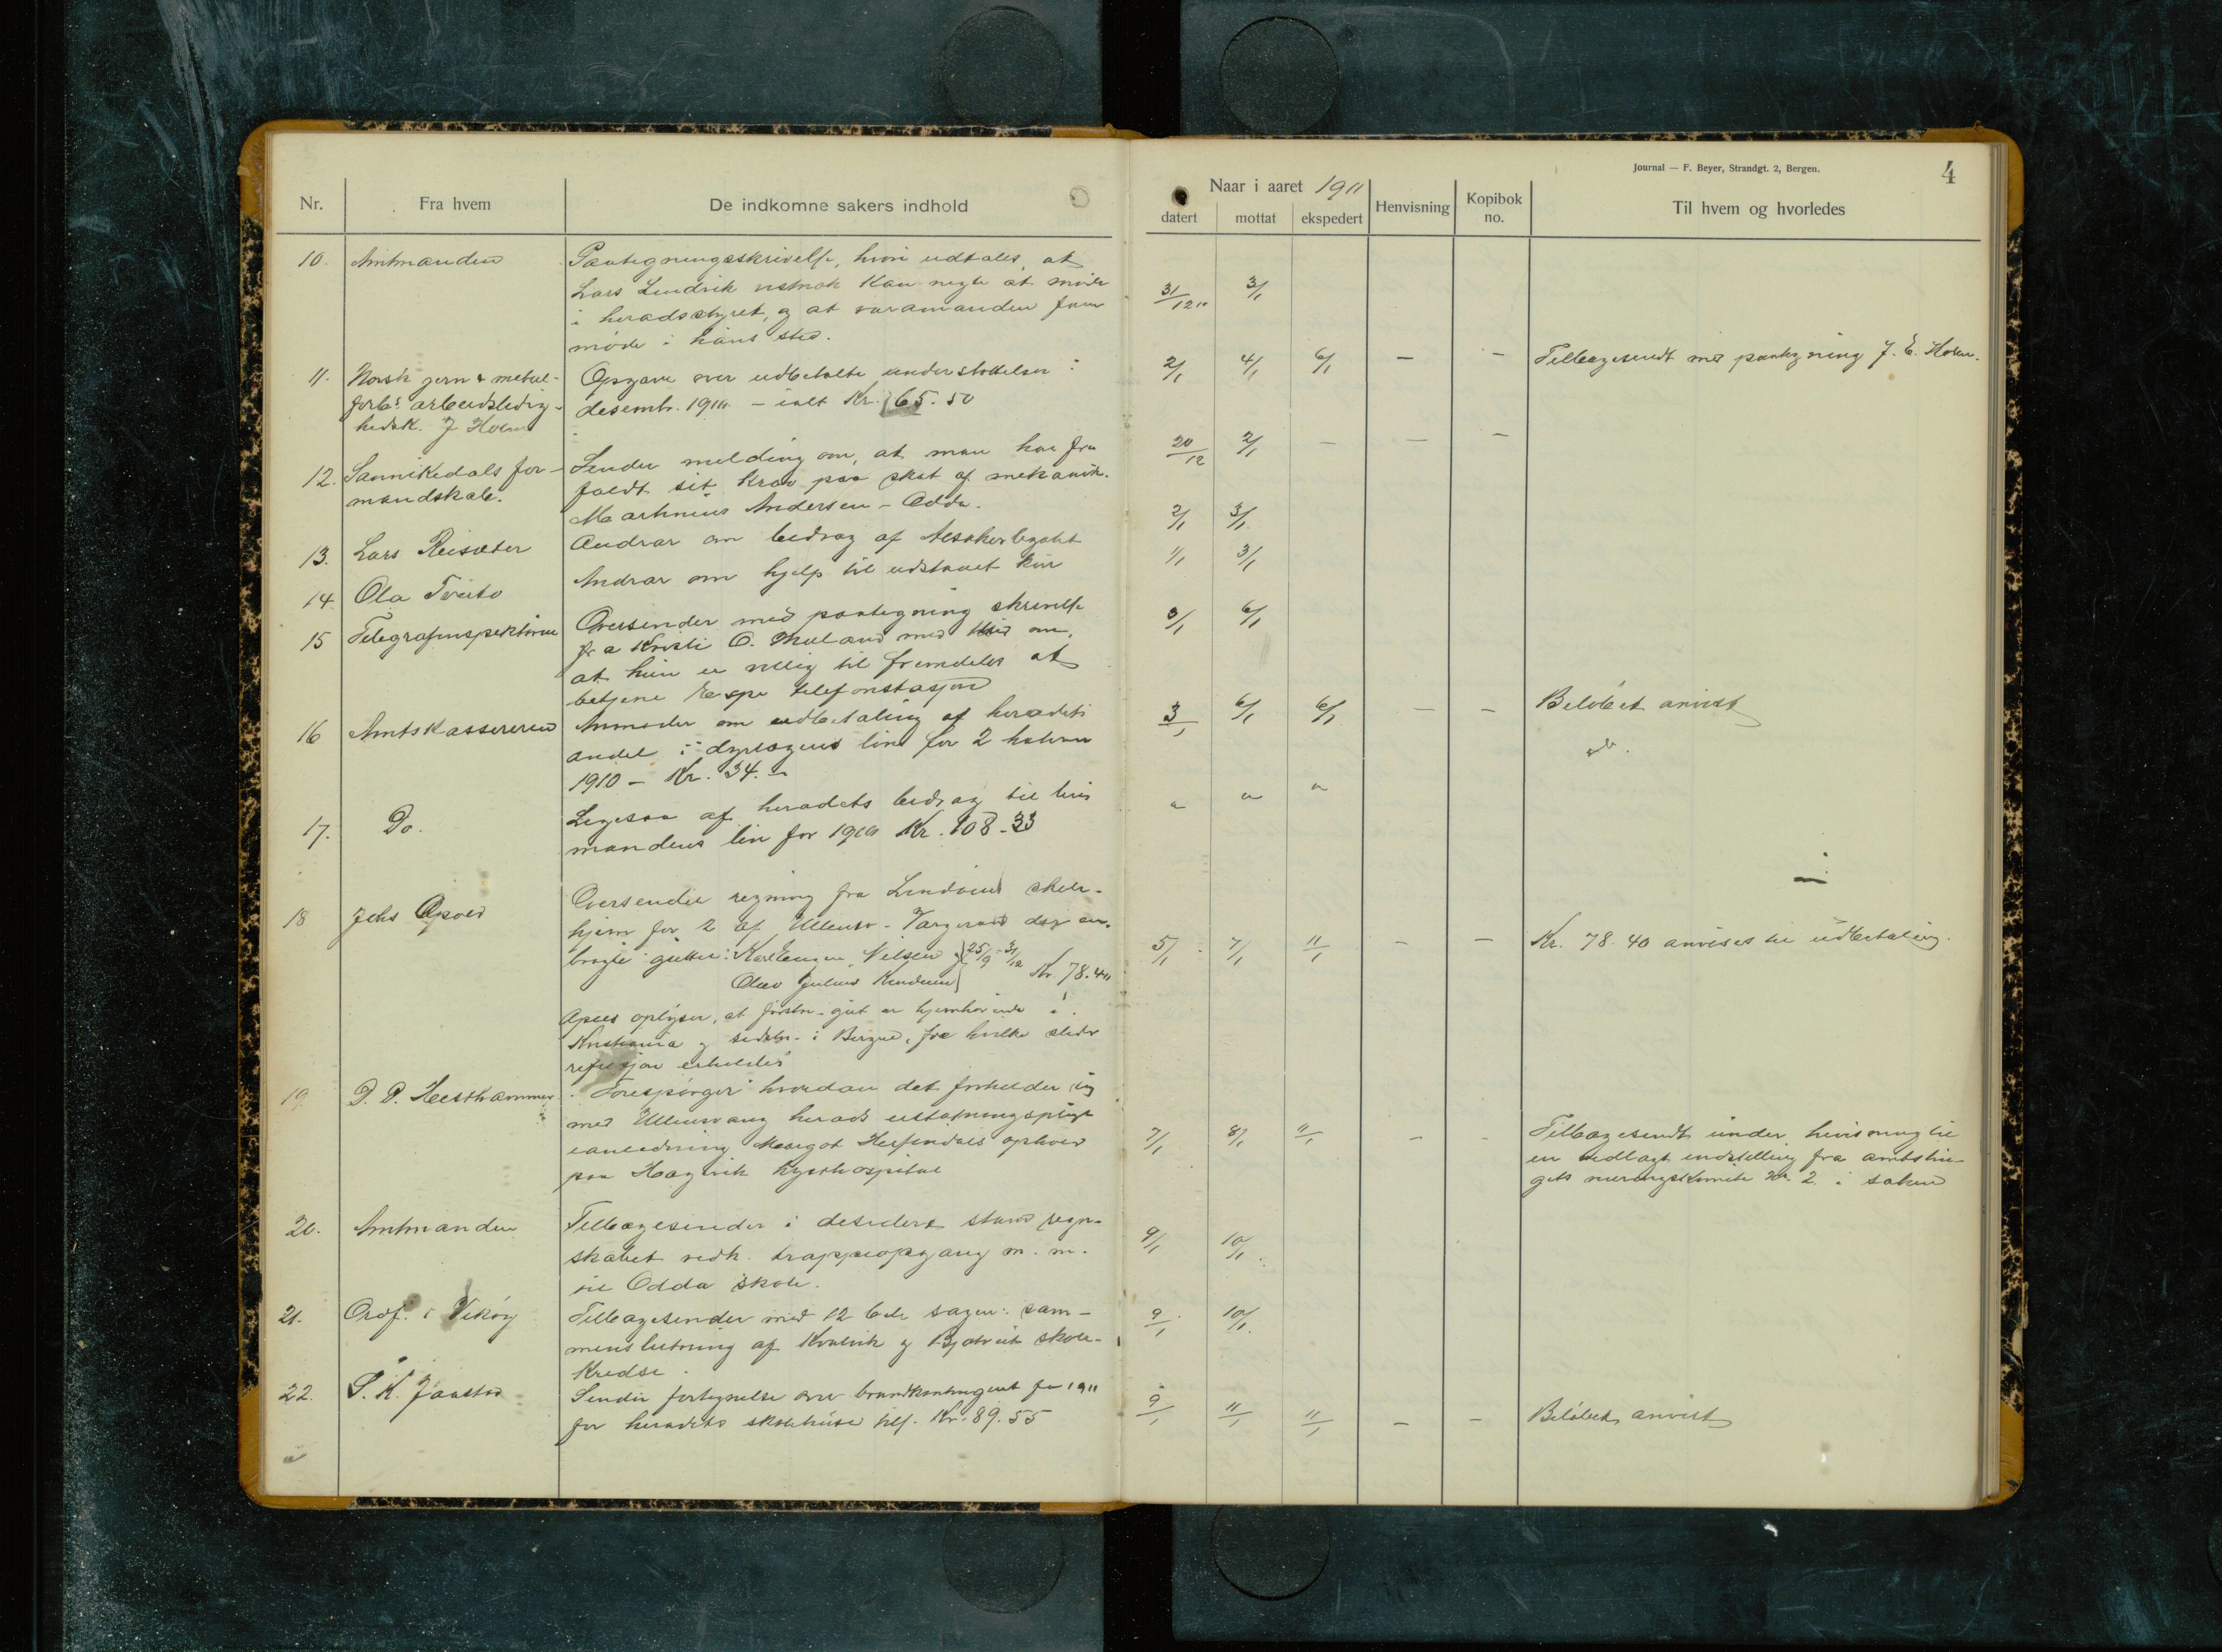 Journal — F. Beyer, Strandgt. 2, Bergen.
4
Nr.
Fra hvem
De indkomne sakers indhold
Naar i aaret 1911
datert
mottat
ekspedert
Henvisning
Kopibok no.
Til hvem og hvorledes
10. Amtmanden
Paategningsskrivelse, hvori udtales, at
Lars Lindvik retmæk kan negte at møde
i heradsstyret, og at varamanden faar
møde i hans sted.
31/12 10 3/1
11. Norsk jern & metal-
forb.s arbeidsledig-
hedsk. J Holm
Opgave over udbetalte understøttelser i
desembr. 1910 - ialt Kr. 65.50
2/1 4/1 6/1 — — Tilbagesendt med paategning J. E. Holm.
12. Sannikedals for-
mandskab.
Sender melding om, at man har fra
faldt sit krav paa skat af mekanik.
Marthinius Andersen - Odda.
20/12 2/1 — — —
13. Lars Reisæter
Andrar om bidrag af Aesakerlegatet
2/1 3/1
14. Ola Tveito
Andrar om hjelp til udstanet kur
1/1 3/1
15 Telegrafinspektøren
Oversender med paategning skrivelse
fra Kristi O. Maeland med om,
at hun er villig til fremdeles at
betjene Espe telefonstasjon
3/1 6/1
16 Amtskassereren
Anmoder om udbetaling af heradets
andel i dyrlægens løn for 2 halvaar
1910 - Kr. 34.-
3/1 6/1 6/1 — — Beløbet anvist
17. Do.
Ligesaa af heradets bidrag til lens
mandens løn for 1910 Kr. 108.33
" " " do.
18 Jehs Apold
Oversender regning fra Lindøens skole-
hjem for 2 af Ullensv. Værgeraad der an-
bragte gutter: Karl Eugen Nilsen } 25/9 - 31/12
Olav Julius Knudsen } Kr. 78.40
Apold oplyser, at førstn. gut er hjemhørende i
Kristiania og sidstn. i Bergen, fra hvilke steder
refusjon erholdes
5/1 7/1 11/1 — — Kr. 78.40 anvises til udbetaling.
19. D. P. Heesthammer
Forespørger hvordan det forholder sig
med Ullensvang herads erstatningspligt
i anledning Margot Hersindals ophold
paa Hagevik kysthospital
7/1 8/1 11/1 — — Tilbagesendt under henvisning til
en vedlagt indstilling fra amtstin-
gets meringskomite Nr. 2 i saken
20. Amtmanden
Tilbagesender i desidert stand regn-
skabet vedk. trappeopgang m. m.
til Odda skole.
9/1 10/1
21. Ordf. i Vikør
Tilbagesender med 12 bil. sagen: sam-
menslutning af Kvalvik og Bjotveit skole-
kredse.
9/1 10/1
22. S. K. Jaastad
Sender fortegnelse over brandkontingent for 1911
for heradets skolehuse tils. Kr. 89.55
9/1 11/1 11/1 — — Beløbet anvist